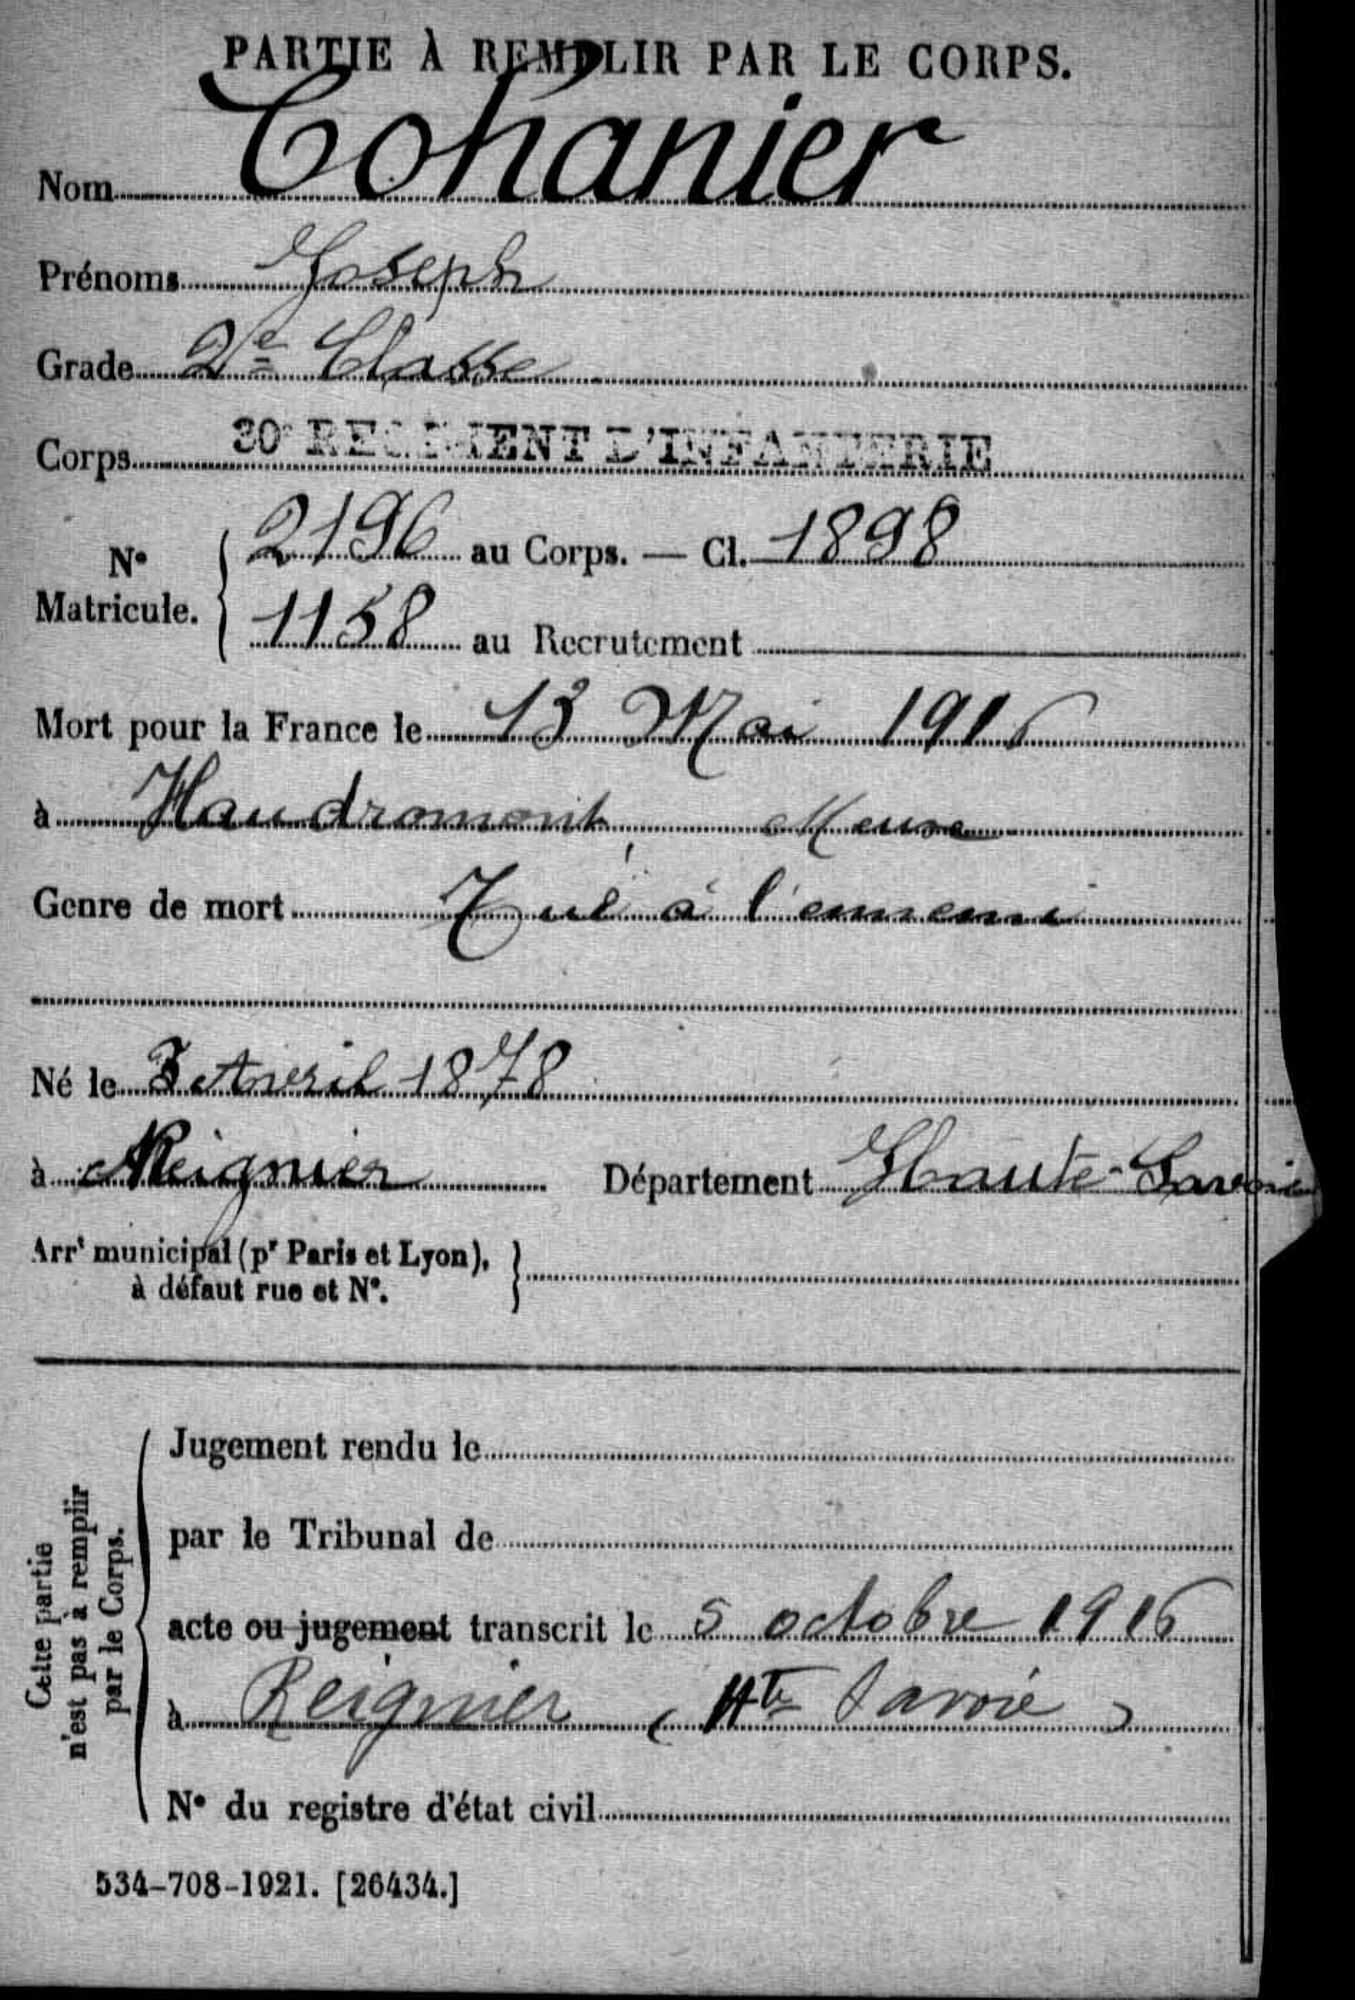 PARTIE À REMPLIR PAR LE CORPS.
Nom Cohanier
Prénoms Joseph
Grade 2e Classe
Corps 30e REGIMENT D'INFANTERIE
No Matricule. { 2196 au Corps. — Cl. 1898
1158 au Recrutement
Mort pour la France le 13 Mai 1916
à Haudromont Meuse
Genre de mort Tué à l'ennemi
Né le 3 Avril 1878
à Reignier Département Haute-Savoie
Arrt municipal (pr Paris et Lyon),
à défaut rue et No.
Cette partie
n'est pas à remplir
par le Corps.
Jugement rendu le
par le Tribunal de
acte ou jugement transcrit le 5 octobre 1916
à Reignier (Hte Savoie)
No du registre d'état civil
534-708-1921. [26434.]